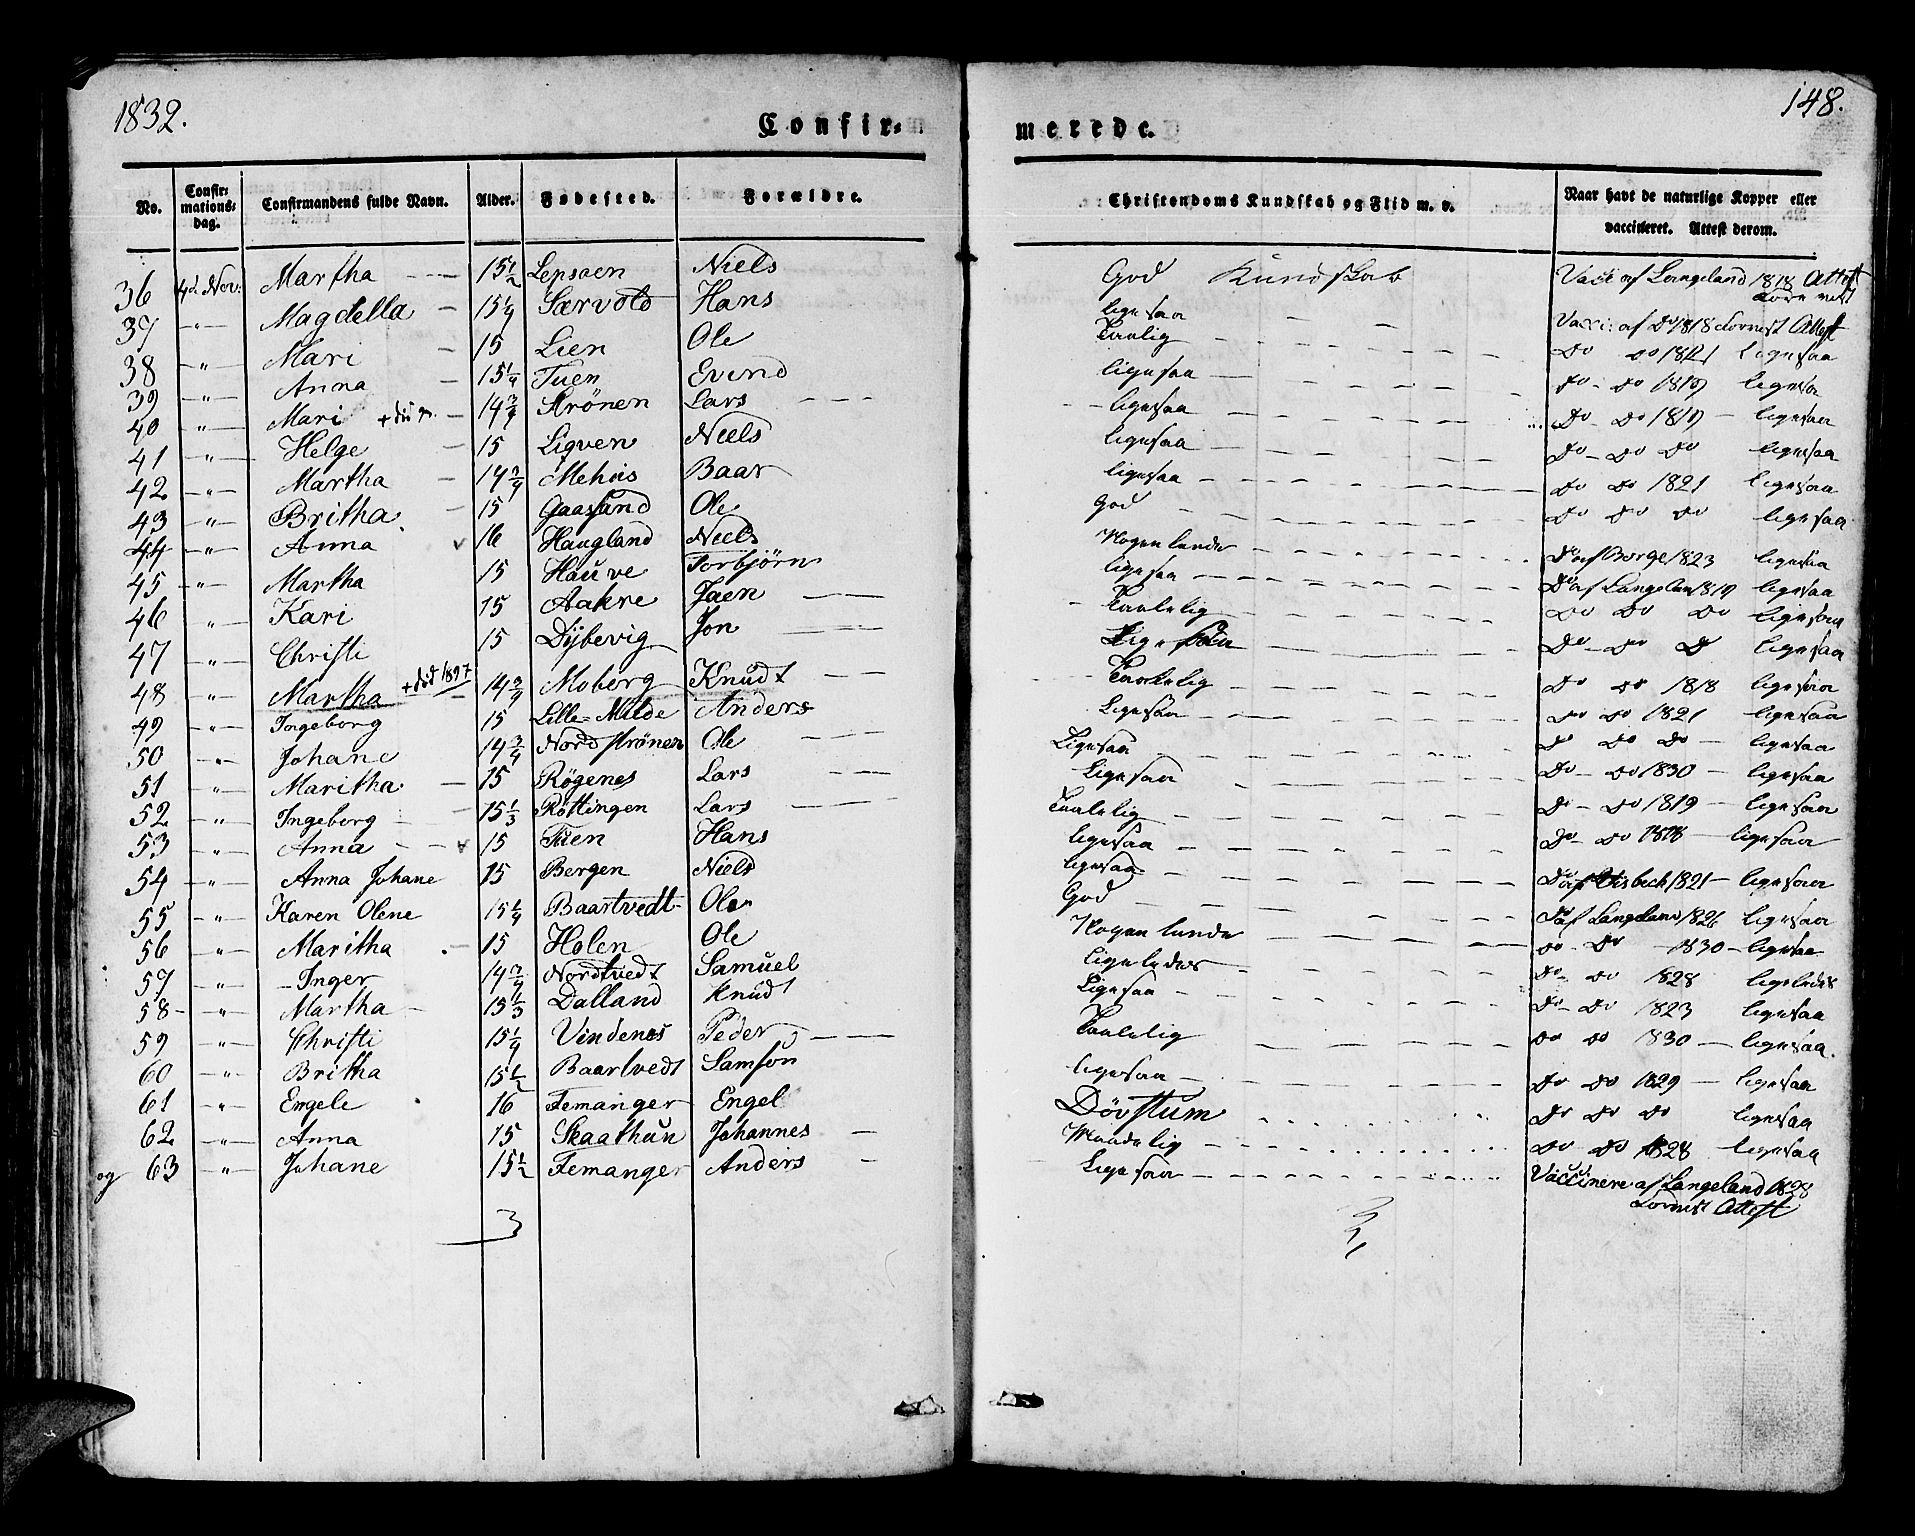 1832.
148.
Confirmerede.
No. Confirmationsdag. Confirmandens fulde Navn. Alder. Fødested. Forældre. Christendoms Kundskab og Flid m. v. Naar havt de naturlige Kopper eller vaccineret. Attest derom.
36 4d Nov: Martha 15 1/2 Lepsøen Niels God Kundskab Vacc af Langeland 1818 Attest
37 -"- Magdella 15 1/4 Særvold Hans ligesaa Vacci: af Do 1818 Attest
38 -"- Mari 15 Lien Ole Taalig Do Do 1821 ligesaa
39 -"- Anna 15 1/4 Tuen Evend ligesaa Do - Do 1819 ligesaa
40 -"- Mari 14 3/4 Strönen Lars ligesaa Do - Do 1819 - ligesaa
41 -"- Helge 15 Ligven Niels ligesaa Do - Do Do ligesaa
42 -"- Martha 14 3/4 Mehuis Baar ligesaa Do Do 1821 ligesaa
43 -"- Britha 15 Gaassand Ole God Do Do Do ligesaa
44 -"- Anna 16 Haugland Niels Nogenlunde Do af Borge 1823 ligesaa
45 -"- Martha 15 Hauve Torbjörn ligesaa Do af Langelan 1819 ligesaa
46 -"- Kari 15 Aakre Jaen Taalelig Do Do Do ligesaa
47 -"- Christi 15 Dybevig Jon Ligesaa Do - Do D ligesaa
48 -"- Martha + död 1897 14 3/4 Moberg Knudt Taalelig Do Do 1818 ligesaa
49 -"- Ingeborg 15 Lille-Milde Anders Ligesaa Do Do 1821 ligesaa
50 -"- Johane 14 3/4 Nordströnen Ole Ligesaa Do Do Do - ligesaa
51 -"- Maritha 15 Røgenes Lars Ligesaa Do - Do 1830 - ligesaa
52 -"- Ingeborg 15 1/3 Røttingen Lars Taalelig Do - Do 1819 - ligesaa
53 -"- Anna 15 Tuen Hans ligesaa Do - Do 1818 - ligesaa
54 -"- Anna Johane 15 Bergen Niels ligesaa Do af Wisbech 1821 - ligesaa
55 -"- Karen Olene 15 1/4 Baartvedt Ole God Do af Langeland 1826 ligesaa
56 -"- Maritha 15 Holen Ole Nogenlunde Do - Do - 1830 - ligesaa
57 -"- Inger 14 3/4 Nordtvedt Samuel ligeledes Do - Do 1828 ligeledes
58 -"- Martha 15 1/3 Dalland Knudt Ligesaa Do - Do 1823 ligesaa
59 -"- Christi 15 1/4 Vindenes Peder Taalelig Do Do 1830 - ligesaa.
60 -"- Britha 15 1/2 Baartvedt Samson ligesaa Do Do 1829 - ligesaa
61 -"- Engele 16 Femanger Engel Døvstum Do Do Do ligesaa
62 -"- Anna 15 Skaathun Johannes Maadelig Do Do 1828 - ligesaa
og 63 -"- Johane 15 1/2 Femanger Anders Ligesaa Vaccinere af Langeland 1828
Attest
3